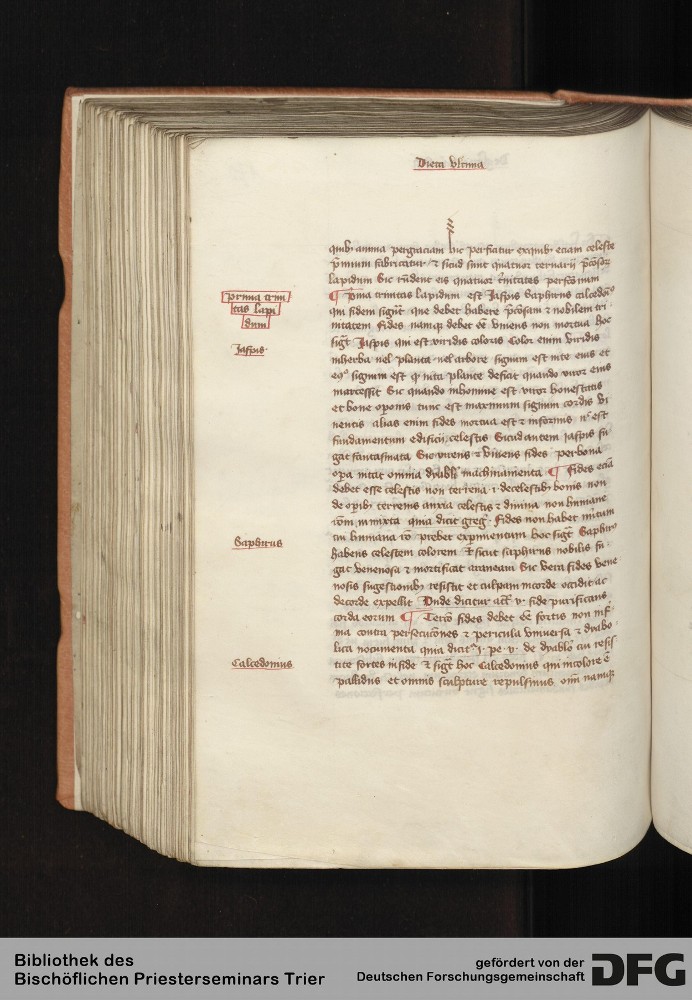 Dieta vltima
quib₉ anima per graciam hic perficitur ex quib₉ eciam celeste
p̄mium fabricatur ⁊ sicud sunt quatuor ternarij p̄cosoꝝ
lapidum Sic rn̄dent eis quatuor t̓nitates personarum
prima trini
tas lapi
dum
¶ Pⁱma trinitas lapidum est Jaspis Saphirus calcedoi᷒
qui fidem sigt̄ que debet habere p̄cosam ⁊ nobilem tri
nitatem fides namq₃ debet ēē viuens non mortua hoc
Jaspis
sigt̄ Jaspis qui est viridis coloris Color enim viridis
in herba uel planta uel arbore signum est vite eius et
signum est ꝙ vita plante deficit quando viror eius
marcessit Sic quando in homine est viror honestatis
et bone operonis tunc est maximum signum cordis vi
uentis alias enim fides mortua est ⁊ informis est
fundamentum edificij celestis Sicud autem Jaspis fu
gat fantasmata Sic virens ⁊ viuens fides per bona
opa vitat omnia dyaboli machinamenta ¶ Fides eciā
debet esse celestis non terrena .i. de celestib₉ bonis non
de opib₉ terrenis anxia celestis ⁊ diuina non humane
rōni inmixta quia dicit greg᷒ Fides non habet mi̓tum
cui humana rō prebet experimentum hoc sigt̄ Saphir᷒
Saphirus
habens celestem colorem Et sicut saphirus nobilis fu
gat venenosa ⁊ mortificat araneam Sic vera fides vene
nosis sugestionib₉ resistit et culpam in corde occidit ac
de corde expellit Vnde dicitur act̄ .v. fide purificans
corda eorum ¶ Tercio fides debet ēē fortis non infir
ma contra persecucōnes ⁊ pericula vniuersa ⁊ dyabo
lica nocumenta quia dicit᷒ .j. pe .v. de dyabolo cui resis
Calcedonius
tite fortes in fide Et sigt̄ hoc Calcedonius qui in colore ē
pallidus et omnis sculpture repulsiuus om̄ namq₃
Bibliothek des
Bischöflichen Priesterseminars Trier
gefördert von der
Deutschen Forschungsgemeinschaft
DFG